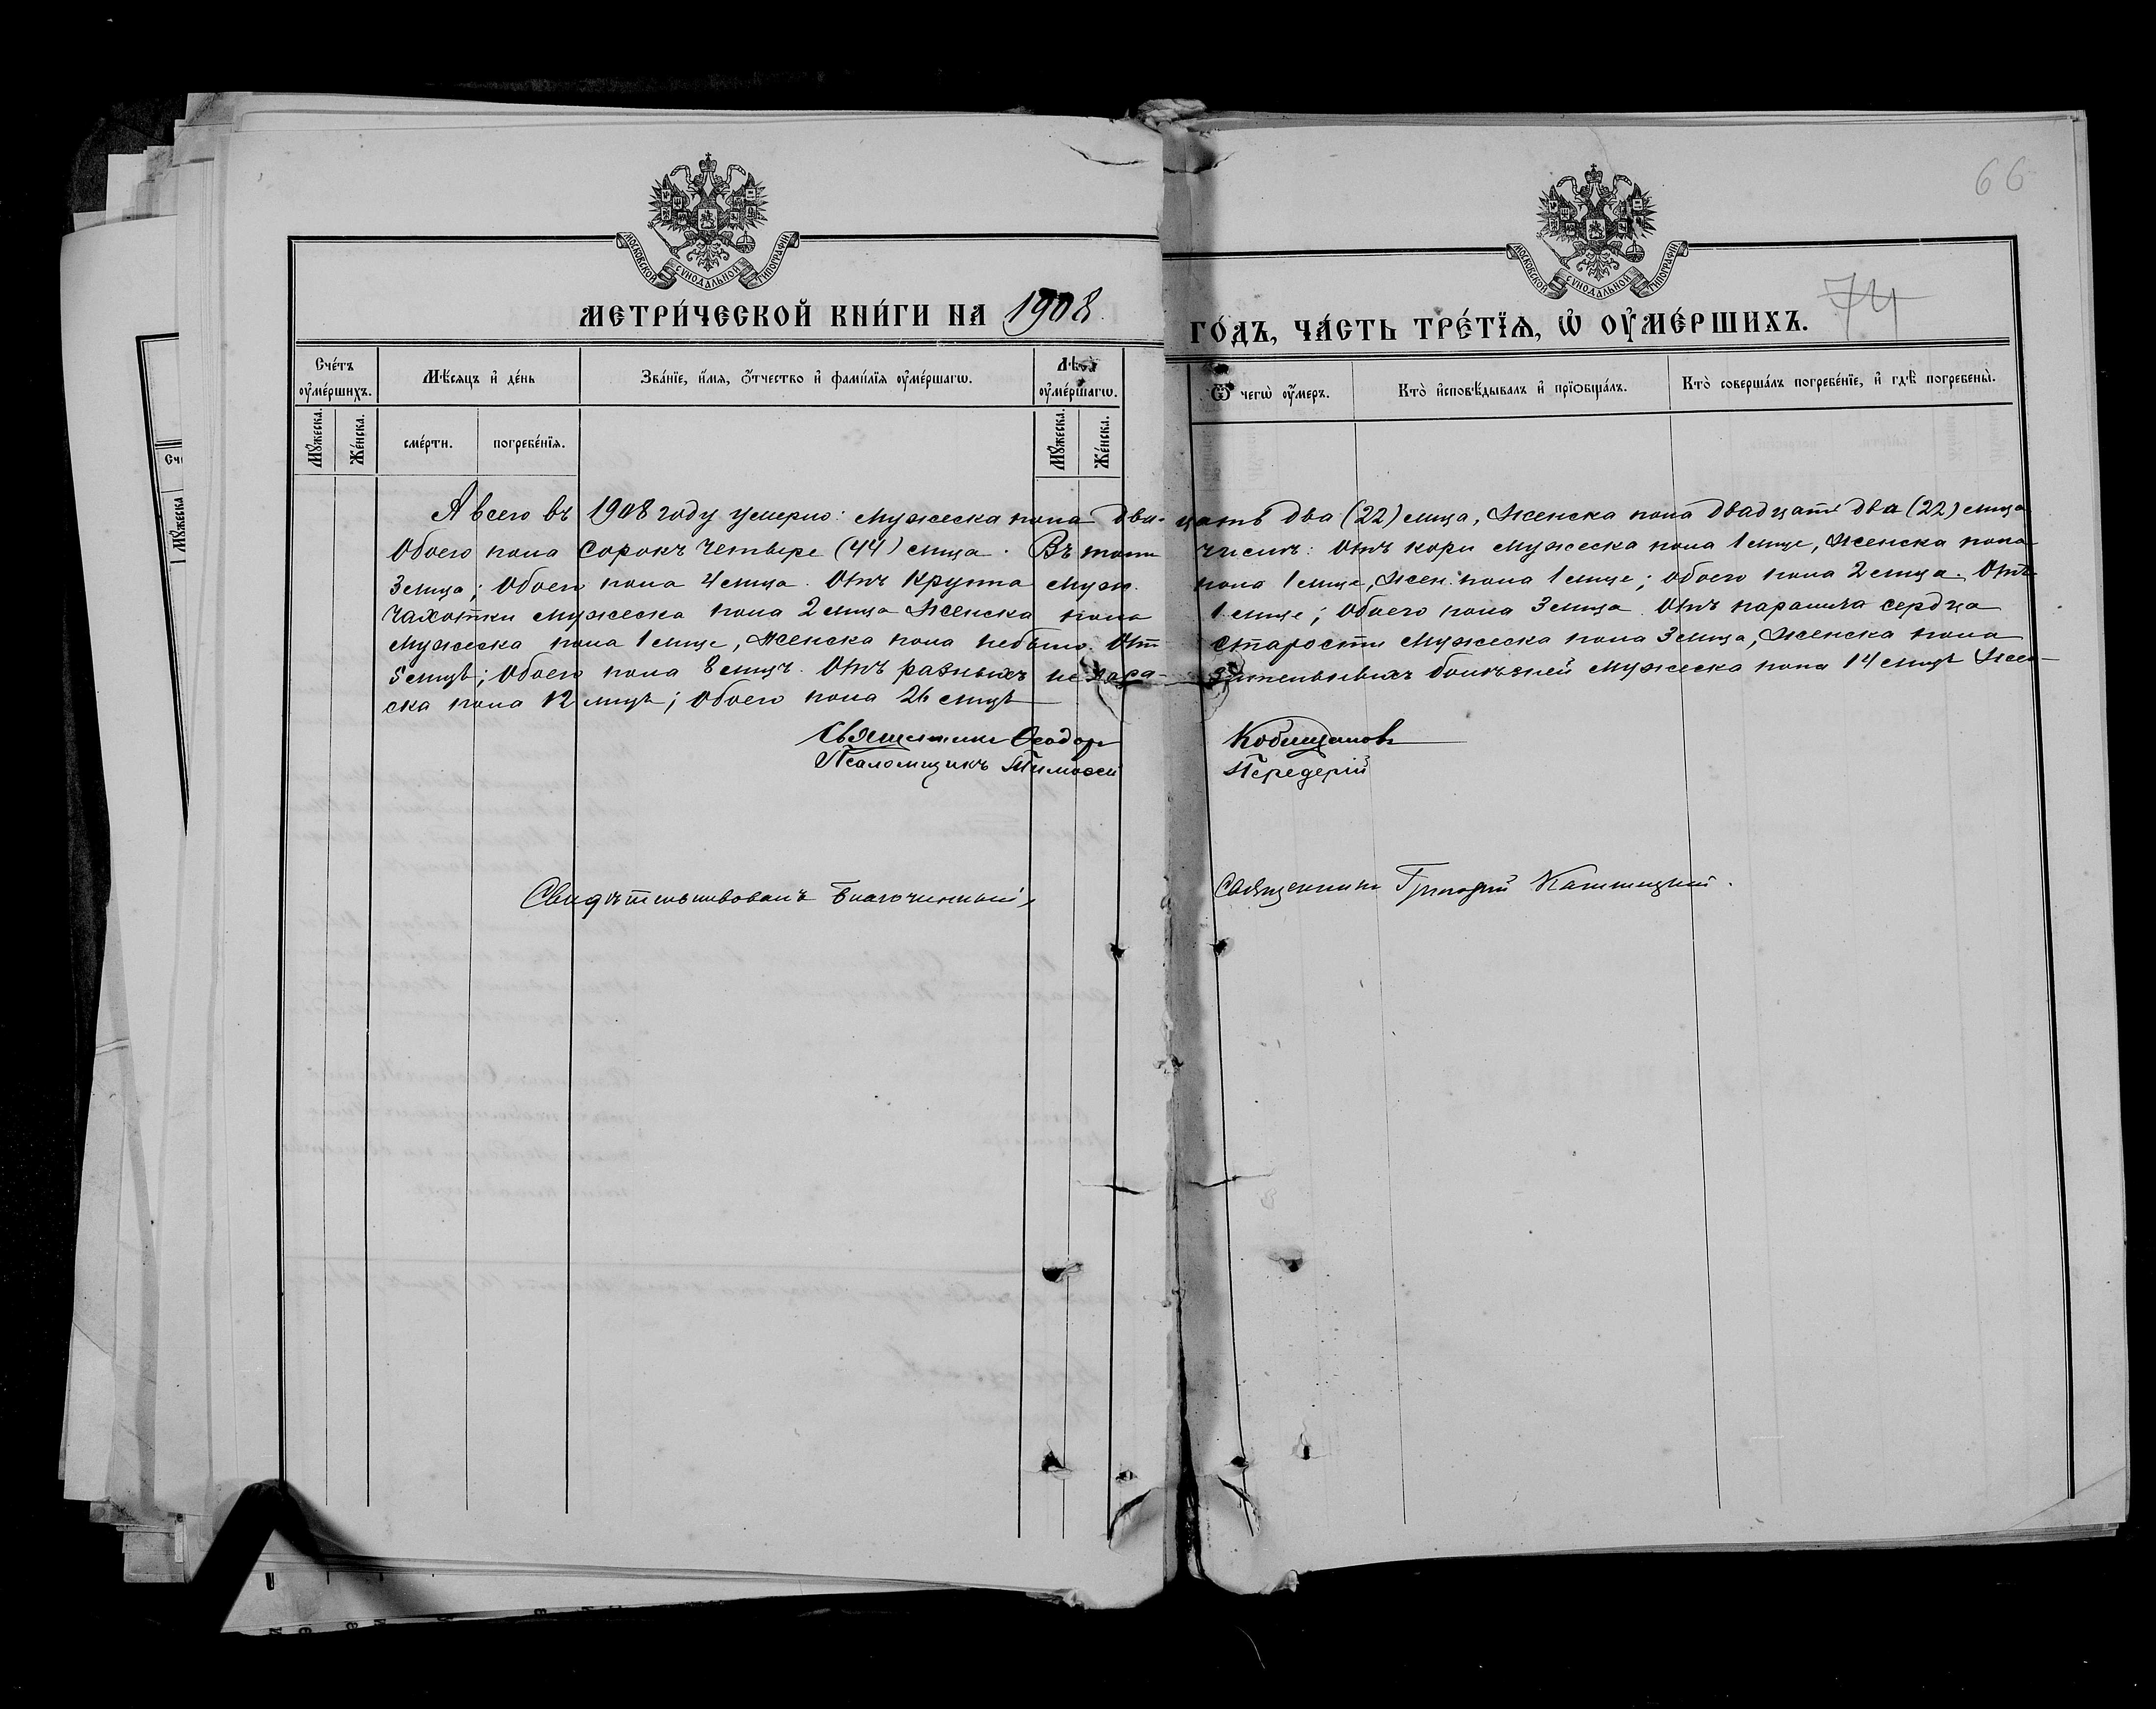 66
МОСКОВСКОЙ СѴНОДАЛЬНОЙ ТИПОГРАФІИ
МОСКОВСКОЙ СѴНОДАЛЬНОЙ ТИПОГРАФІИ
МЕТРИ́ЧЕСКОЙ КНИ́ГИ НА 1908 ГО́ДЪ, ЧА́СТЬ ТРЕ́ТЇѦ, Ѽ ОУ҆МЕ́РШИХЪ. 74
Сче́тъ оу҆ме́ршихъ.
Мѣ́сяцъ и҆ де́нь
Зва́нїе, и҆́мя, ѻ҆́тчество и҆ фами́лїя оу҆ме́ршагѡ.
Лѣта оу҆ме́ршагѡ.
Ѿ чегѡ̀ оу҆́меръ.
Кто̀ и҆сповѣ́дывалъ и҆ прїѻбща́лъ.
Кто̀ соверша́лъ погребе́нїе, и҆ гдѣ̀ погребены̀.
Мꙋ́жеска.
Же́нска.
сме́рти.
погребе́нїя.
Мꙋ́жеска.
Же́нска.
Мꙋ́жеска
А всего въ 1908 году умерло: мужеска пола двадцать два (22) лица, женска пола двадцать два (22) лица
Обоего пола сорокъ четыре (44) лица. Въ томъ числѣ: Отъ кори мужеска пола 1 лице, женска пола
3 лица; Обоего пола 4 лица. Отъ крупа муж. пола 1 лице, жен. пола 1 лице; обоего пола 2 лица. Отъ
чахотки мужеска пола 2 лица женска пола 1 лице; Обоего пола 3 лица. Отъ паралича сердца
мужеска пола 1 лице, женска пола небыло. Отъ старости мужеска пола 3 лица, женска пола
5 лицъ; Обоего пола 8 лицъ. Отъ разныхъ не зара-зительныхъ болѣзней мужеска пола 14 лицъ жен-
ска пола 12 лицъ; Обоего пола 26 лицъ
Священникъ Ѳеодоръ Кобищановъ
Псаломщикъ Тимоѳей Передерій
Свидѣтельствовалъ Благочинный, Священникъ Григорій